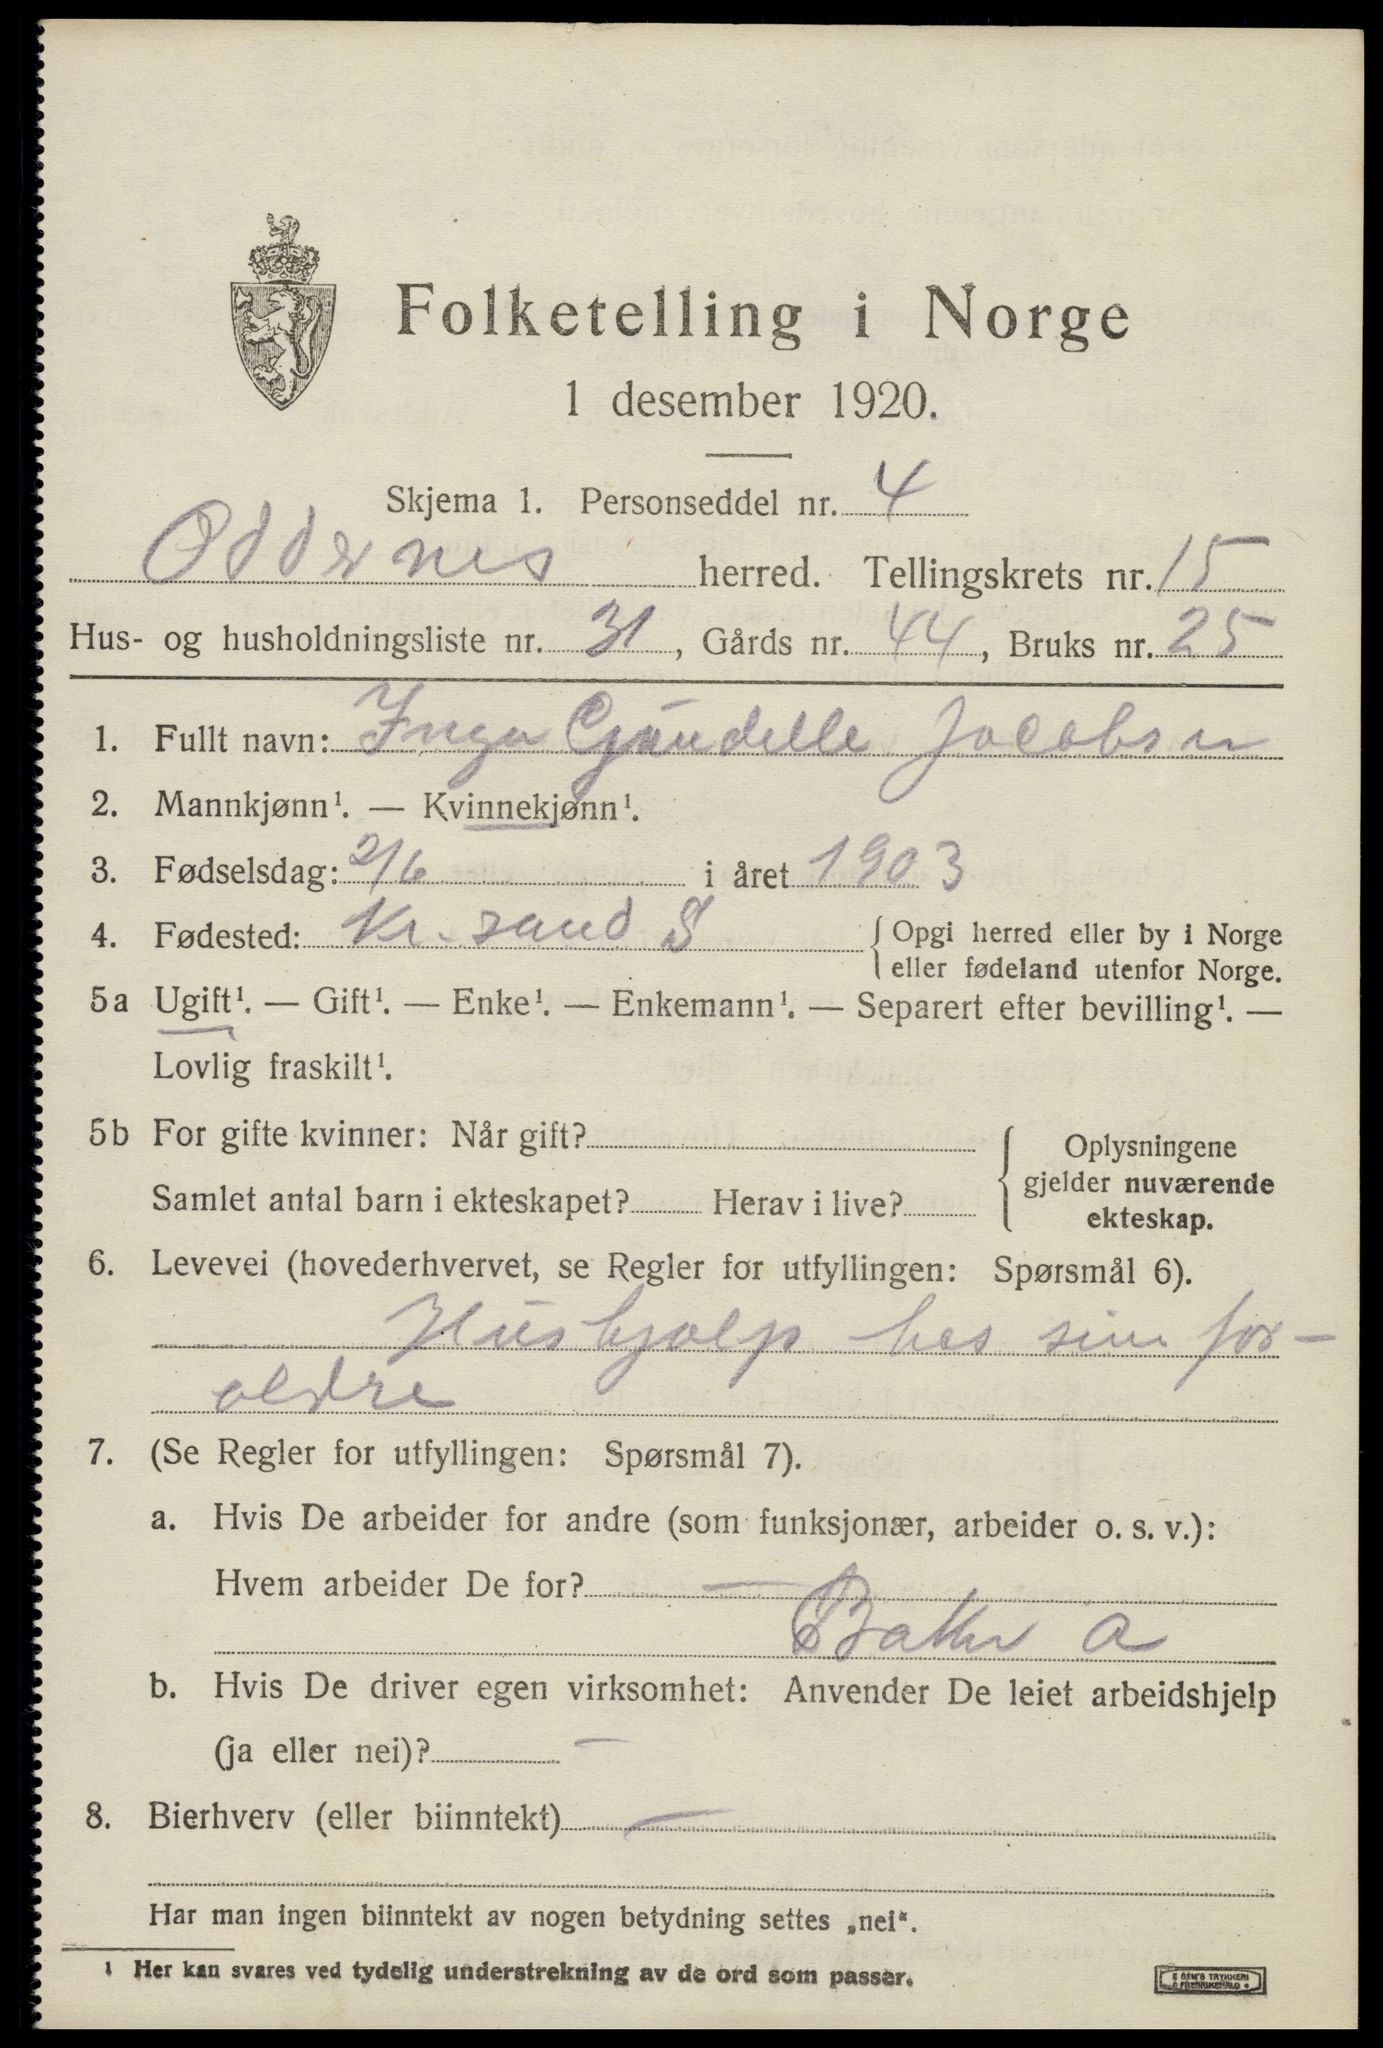 Folketelling i Norge
1 desember 1920.
Skjema 1. Personseddel nr. 4
Oddernes herred. Tellingskrets nr. 15
Hus- og husholdningsliste nr. 31, Gårds nr. 44, Bruks nr. 25
1. Fullt navn: Inga Jacobsen
2. Mannkjønn¹. — Kvinnekjønn¹.
3. Fødselsdag: 2/6 i året 1903
4. Fødested: Kr. sand S { Opgi herred eller by i Norge
eller fødeland utenfor Norge.
5a Ugift¹. — Gift¹. — Enke¹. — Enkemann¹. — Separert efter bevilling¹. —
Lovlig fraskilt¹.
5b For gifte kvinner: Når gift? Oplysningene
gjelder nuværende
Samlet antal barn i ekteskapet? Herav i live?
ekteskap.
6. Levevei (hovederhvervet, se Regler for utfyllingen: Spørsmål 6).
Hushjælp hos sine for-
ældre
7. (Se Regler for utfyllingen: Spørsmål 7).
a. Hvis De arbeider for andre (som funksjonær, arbeider o. s. v.):
Hvem arbeider De for? —
a
b. Hvis De driver egen virksomhet: Anvender De leiet arbeidshjelp
(ja eller nei)? —
8. Bierhverv (eller biinntekt) —
Har man ingen biinntekt av nogen betydning settes „nei".
¹ Her kan svares ved tydelig understrekning av de ord som passer.
E SEM'S TRYKKERI
FREDRIKSHALD